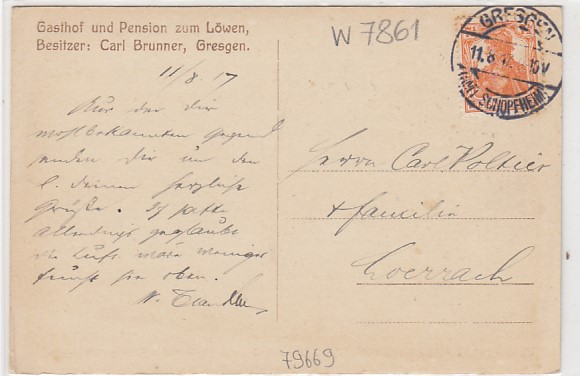 Gasthof und Pension zum Löwen,
Besitzer: Carl Brunner, Gresgen.
W 7861
GRESGEN
11.8.
10V
(AMT SCHOPFHEIM)
11/8 17
Aus der dir
wohlbekannten Gegend
senden dir und den
l. deinen herzliche
Grüße. Ich hatte
allerdings geglaubt
die Luft wäre weniger
feucht da oben.
Herrn Carl
& Familie
Loerrach
79669